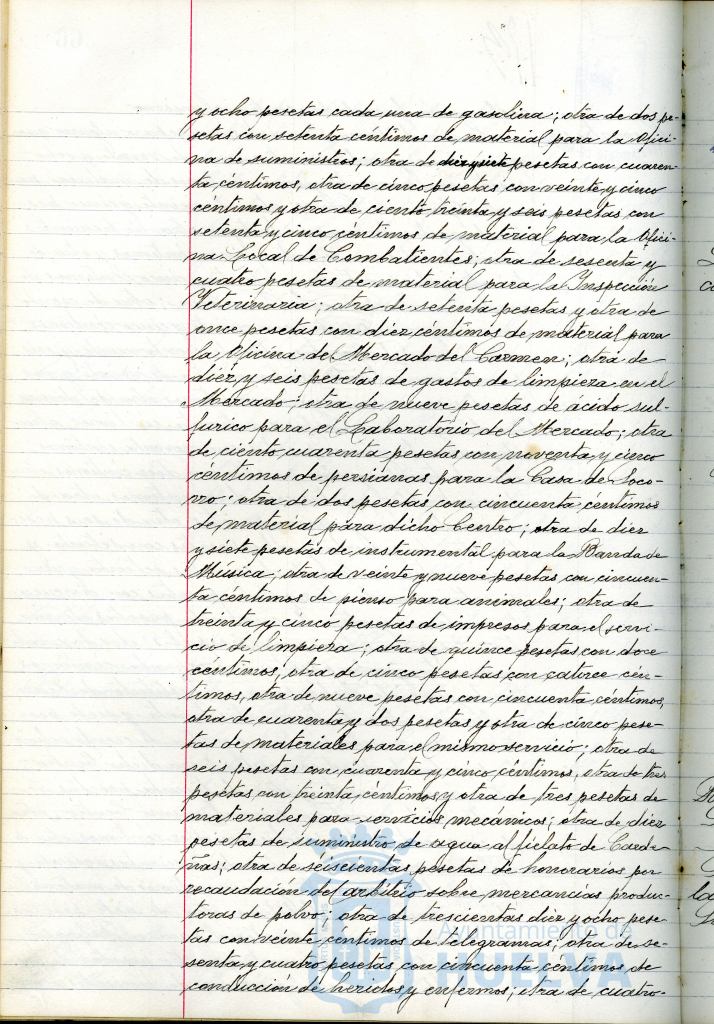 y ocho pesetas cada una de gasolina; otra de dos pe-
setas con setenta céntimos de material para la Ofici-
na de suministros; otra de diez y siete pesetas con cuaren-
ta céntimos, otra de cinco pesetas con veinte y cinco
céntimos y otra de ciento treinta y seis pesetas con
setenta y cinco céntimos de material para la Ofici-
na Local de Combatientes; otra de sesenta y
cuatro pesetas de material para la Inspección
Veterinaria; otra de setenta pesetas y otra de
once pesetas con diez céntimos de material para
la Oficina del Mercado del Carmen; otra de
diez y seis pesetas de gastos de limpieza en el
Mercado; otra de nueve pesetas de ácido sul-
fúrico para el Laboratorio del Mercado; otra
de ciento cuarenta pesetas con noventa y cinco
céntimos de persianas para la Casa de Soco-
rro; otra de dos pesetas con cincuenta céntimos
de material para dicho Centro; otra de diez
y siete pesetas de instrumental para la Banda de
Música; otra de veinte y nueve pesetas con cincuen-
ta céntimos de pienso para animales; otra de
treinta y cinco pesetas de impresos para el servi-
cio de limpieza; otra de quince pesetas con doce
céntimos, otra de cinco pesetas con catorce cén-
timos, otra de nueve pesetas con cincuenta céntimos,
otra de cuarenta y dos pesetas y otra de cinco pese-
tas de materiales para el mismo servicio; otra de
seis pesetas con cuarenta y cinco céntimos, otra de tres
pesetas con treinta céntimos y otra de tres pesetas de
materiales para servicios mecánicos; otra de diez
pesetas de suministro de agua al fielato de Carde-
ñas; otra de seiscientas pesetas de honorarios por
recaudación del arbitrio sobre mercancías produc-
toras de polvo; otra de trescientas diez y ocho pese-
tas con veinte céntimos de telegramas; otra de se-
senta y cuatro pesetas con cincuenta céntimos de
conducción de heridos y enfermos; otra de cuatro-
Ayuntamiento de
HUELVA